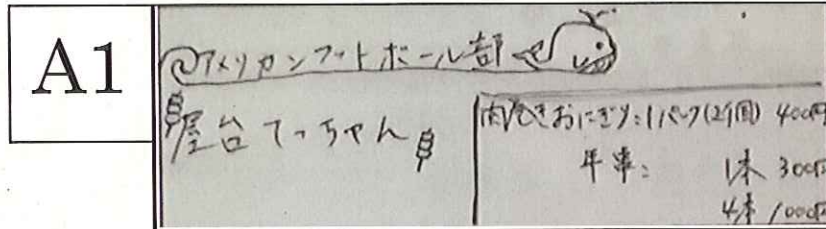 A1
アメリカンフットボール部
屋台てっちゃん
肉巻きおにぎり:1パック(2個) 400円
牛串: 1本 300円
4本 1000円